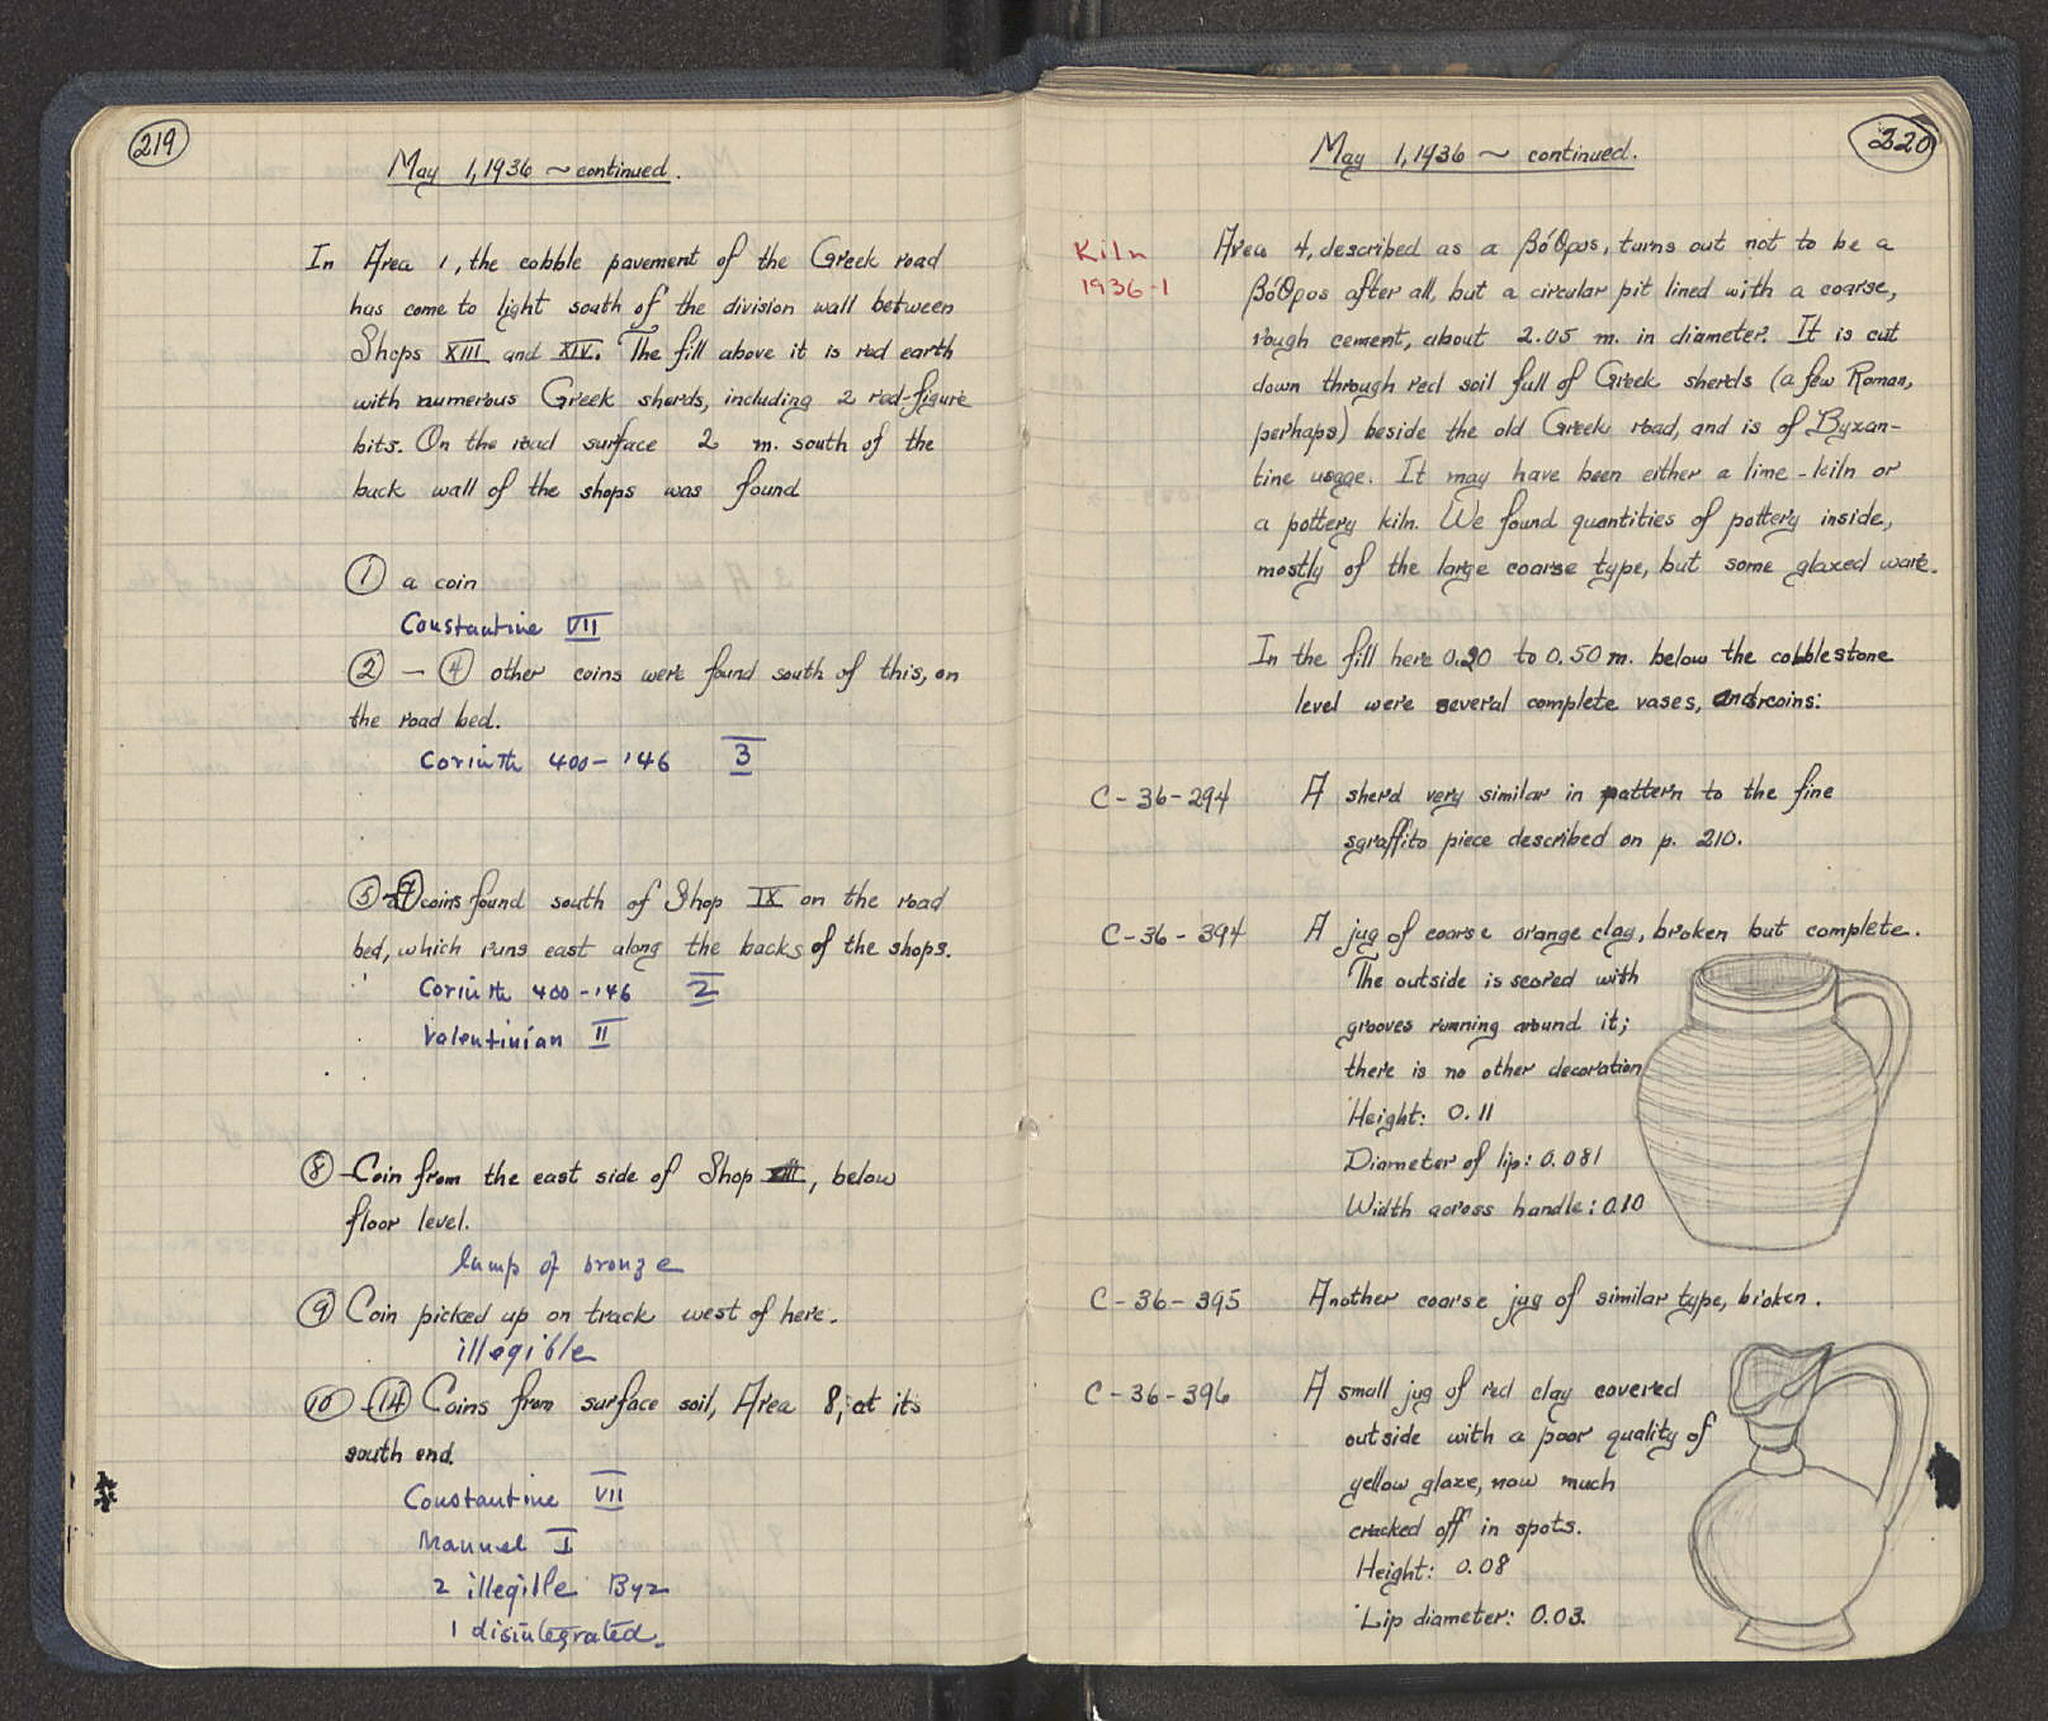 219
May 1, 1936 ~ continued.
In Area 1, the cobble pavement of the Greek road
has come to light south of the division wall between
Shops XIII and XIV. The fill above it is red earth
with numerous Greek sherds, including 2 red-figure
bits. On the road surface 2 m. south of the
back wall of the shops was found
① a coin
Constantine VII
② – ④ other coins were found south of this, on
the road bed.
Corinth 400 – 146 3
⑤ - ⑦ coins found south of Shop IX on the road
bed, which runs east along the backs of the shops.
Corinth 400 – 146 2
Valentinian II
⑧ Coin from the east side of Shop XIII, below
floor level.
lump of bronze
⑨ Coin picked up on track west of here.
illegible
⑩ - ⑭ Coins from surface soil, Area 8, at its
south end.
Constantine VII
Manuel I
2 illegible Byz
1 disintegrated.
220
May 1, 1936 ~ continued.
Kiln
1936-1
Area 4, described as a βόθρos, turns out not to be a
βόθρos after all, but a circular pit lined with a coarse,
rough cement, about 2.05 m. in diameter. It is cut
down through red soil full of Greek sherds (a few Roman,
perhaps) beside the old Greek road, and is of Byzan-
tine usage. It may have been either a lime-kiln or
a pottery kiln. We found quantities of pottery inside,
mostly of the large coarse type, but some glazed ware.
In the fill here 0.20 to 0.50 m. below the cobblestone
level were several complete vases, and coins:
C-36-294 A sherd very similar in pattern to the fine
sgraffito piece described on p. 210.
C-36-394 A jug of coarse orange clay, broken but complete.
The outside is scored with
grooves running around it;
there is no other decoration
Height: 0.11
Diameter of lip: 0.081
Width across handle: 0.10
C-36-395 Another coarse jug of similar type, broken.
C-36-396 A small jug of red clay covered
outside with a poor quality of
yellow glaze, now much
cracked off in spots.
Height: 0.08
Lip diameter: 0.03.